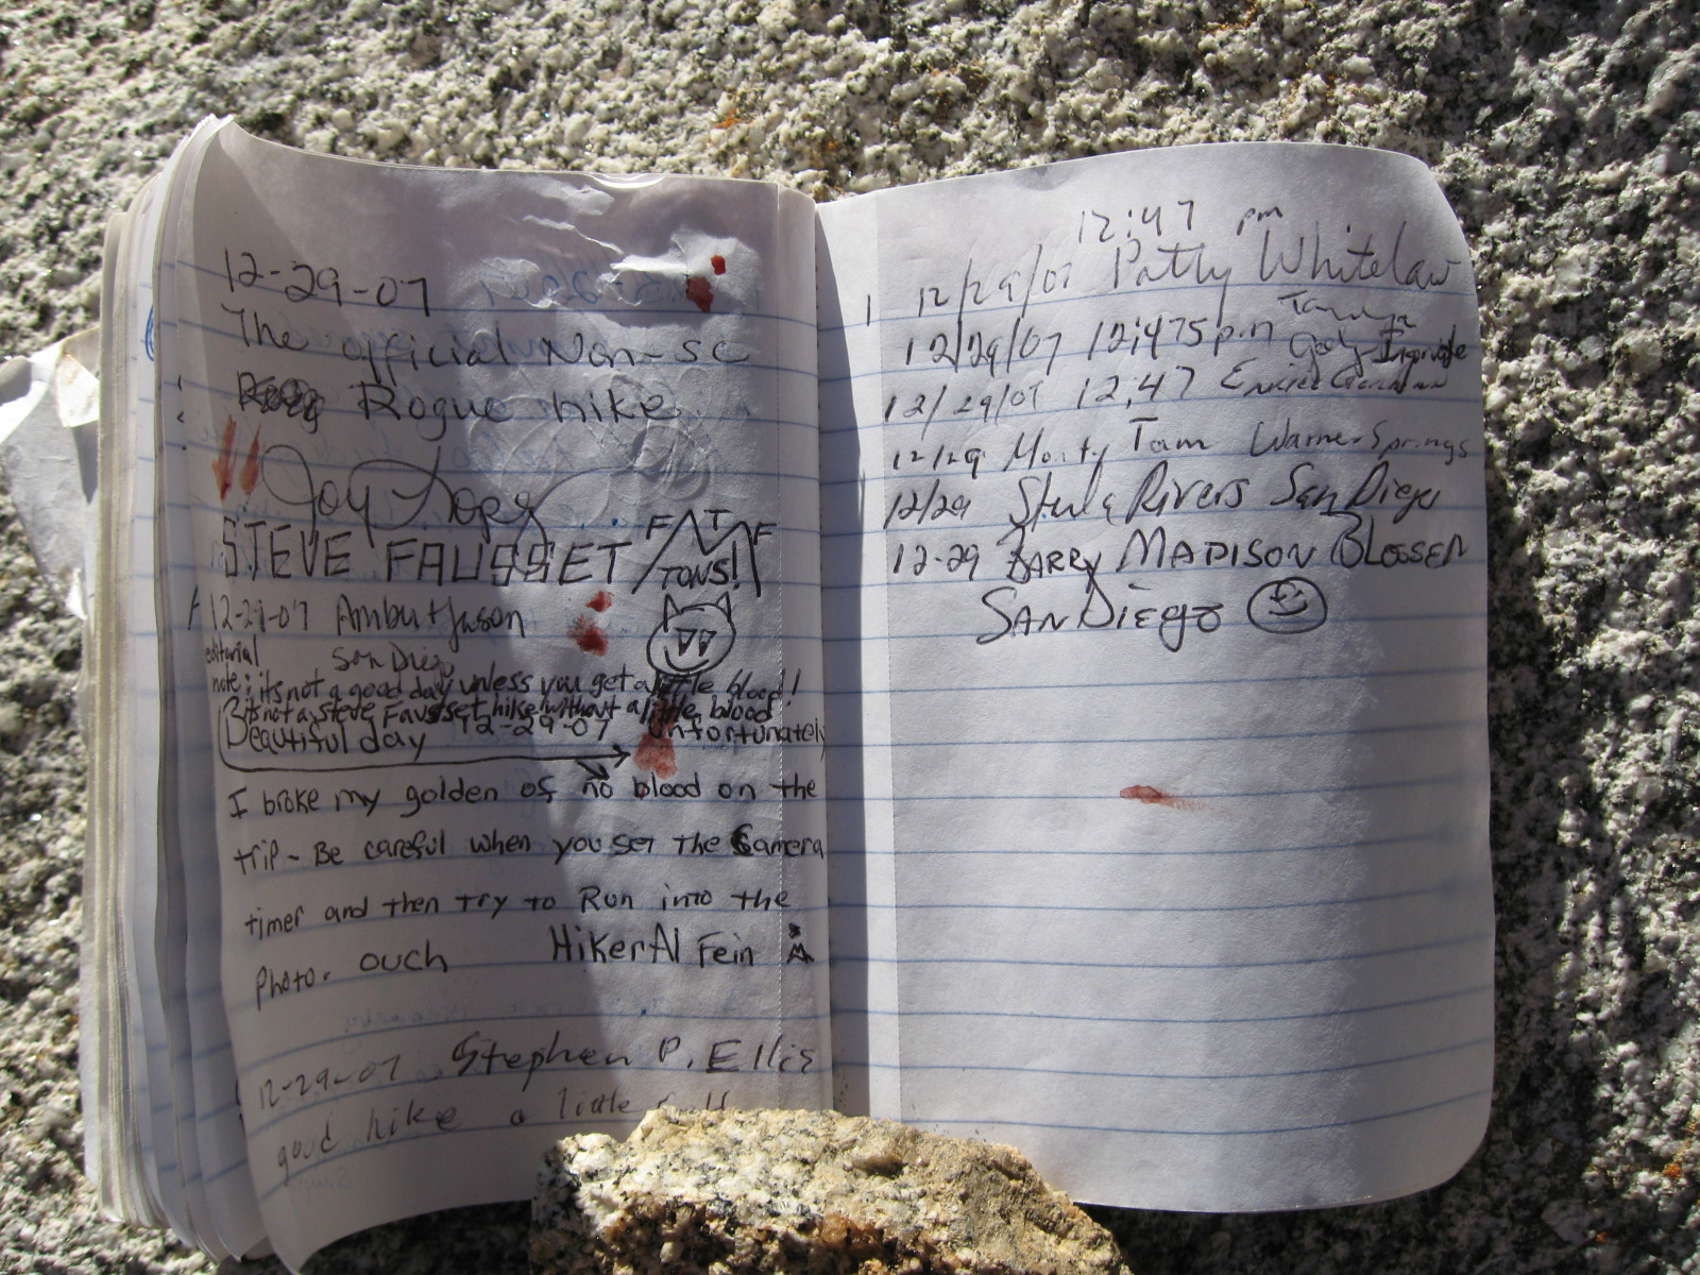 12-29-07
The official Non-SC
Rogue hike
Joy
STEVE FAUSSET
FAT
TONS!
12-29-07
San Diego
editorial
note: its not a good day unless you get a little blood!!
its not a Steve Fausset hike without a little blood
Beautiful day 12-29-07 Unfortunately
I broke my golden of no blood on the
trip - Be careful when you set the Camera
timer and then try to Run into the
Photo. ouch HikerAl Fein
12-29-07 Stephen P. Ellis
good hike a little
12:47 pm
12/29/07 Patty Whitelaw
Tanya
12/29/07 12:475 p.m
12/29/07 12:47
12/29 Monty Tam Warner Springs
12/29 Rivers San Diego
12-29 BARRY MADISON BLOSSER
SAN DIEGO